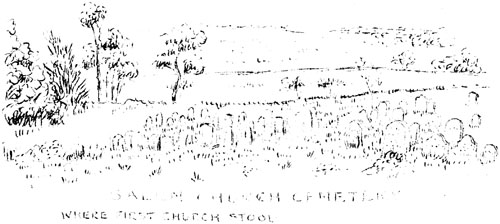 SALEM CHURCH CEMETERY
WHERE FIRST CHURCH STOOD